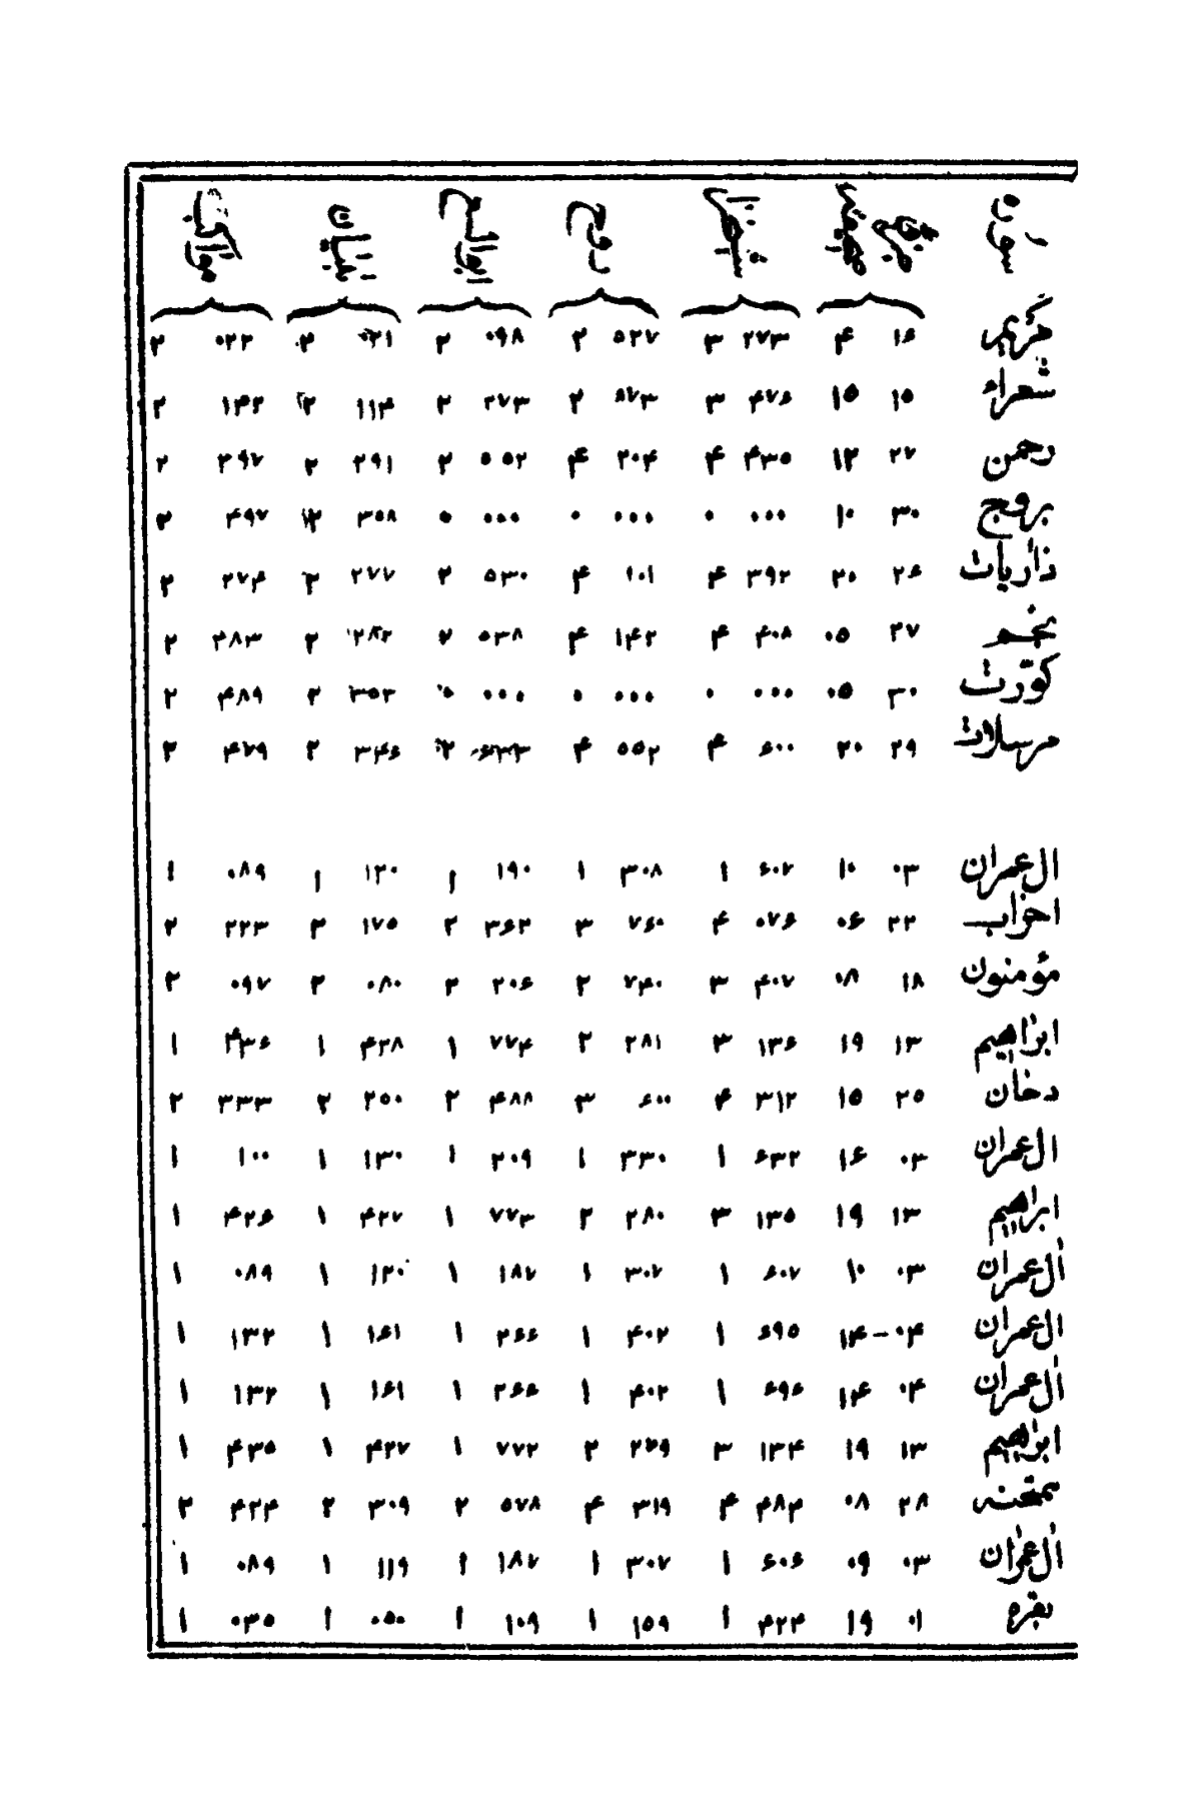 سوره
مریم ۱۶ ۴ ۲۷۳ ۳ ۵۲۷ ۲ ۰۹۸ ۲ ۰۲۱ ۲ ۰۲۲ ۲
شعراء ۱۵ ۱۵ ۴۷۶ ۳ ۸۷۳ ۲ ۲۷۳ ۲ ۱۱۴ ۲ ۱۴۲ ۲
رحمن ۲۷ ۱۲ ۴۳۵ ۴ ۲۰۴ ۴ ۵۵۲ ۲ ۲۹۱ ۲ ۳۹۷ ۲
بروج ۳۰ ۱۰ ۰۰۰ ۰ ۰۰۰ ۰ ۰۰۰ ۰ ۳۵۸ ۲ ۴۹۷ ۲
ذاریات ۲۶ ۲۰ ۳۹۲ ۴ ۱۰۱ ۴ ۵۳۰ ۲ ۲۷۷ ۲ ۲۷۴ ۲
نجم ۲۷ ۰۵ ۴۰۸ ۴ ۱۴۲ ۴ ۵۳۸ ۲ ۲۸۲ ۲ ۳۸۳ ۲
کوّرت ۳۰ ۰۵ ۰۰۰ ۰ ۰۰۰ ۰ ۰۰۰ ۰ ۳۵۳ ۲ ۴۸۹ ۲
مرسلات ۲۹ ۲۰ ۶۰۰ ۴ ۵۵۲ ۴ ۶۳۳ ۲ ۳۴۶ ۲ ۴۷۹ ۲
ال عمران ۰۳ ۱۰ ۶۰۷ ۱ ۳۰۸ ۱ ۱۹۰ ۱ ۱۲۰ ۱ ۰۸۹ ۱
احزاب ۲۲ ۰۶ ۰۷۶ ۴ ۷۶۰ ۳ ۳۶۲ ۲ ۱۷۵ ۲ ۲۲۳ ۲
مؤمنون ۱۸ ۰۸ ۴۰۷ ۳ ۷۴۰ ۲ ۲۰۶ ۲ ۰۸۰ ۲ ۰۹۷ ۲
ابراهیم ۱۳ ۱۹ ۱۳۶ ۳ ۲۸۱ ۲ ۷۷۴ ۱ ۴۲۸ ۱ ۴۳۶ ۱
دخان ۲۵ ۱۵ ۳۱۲ ۴ ۶۰۰ ۳ ۴۸۸ ۲ ۲۵۰ ۲ ۳۳۳ ۲
ال عمران ۰۳ ۱۶ ۶۳۲ ۱ ۳۳۰ ۱ ۲۰۹ ۱ ۱۳۰ ۱ ۱۰۰ ۱
ابراهیم ۱۳ ۱۹ ۱۳۵ ۳ ۲۸۰ ۲ ۷۷۳ ۱ ۴۲۷ ۱ ۴۲۶ ۱
ال عمران ۰۳ ۱۰ ۶۰۷ ۱ ۳۰۷ ۱ ۱۸۷ ۱ ۱۲۰ ۱ ۰۸۹ ۱
ال عمران ۰۴-۱۴ ۶۹۵ ۱ ۴۰۲ ۱ ۲۶۶ ۱ ۱۶۱ ۱ ۱۳۲ ۱
ال عمران ۰۴ ۱۴ ۶۹۶ ۱ ۴۰۲ ۱ ۲۶۶ ۱ ۱۶۱ ۱ ۱۳۲ ۱
ابراهیم ۱۳ ۱۹ ۱۳۴ ۳ ۲۷۹ ۲ ۷۷۲ ۱ ۴۲۷ ۱ ۴۳۵ ۱
ممتحنه ۲۸ ۰۸ ۴۸۴ ۴ ۳۱۹ ۴ ۵۷۸ ۲ ۳۰۹ ۲ ۴۲۴ ۲
ال عمران ۰۳ ۰۹ ۶۰۶ ۱ ۳۰۷ ۱ ۱۸۷ ۱ ۱۱۹ ۱ ۰۸۹ ۱
بقره ۰۱ ۱۹ ۴۲۴ ۱ ۱۵۹ ۱ ۱۰۹ ۱ ۰۵۰ ۱ ۰۳۵ ۱